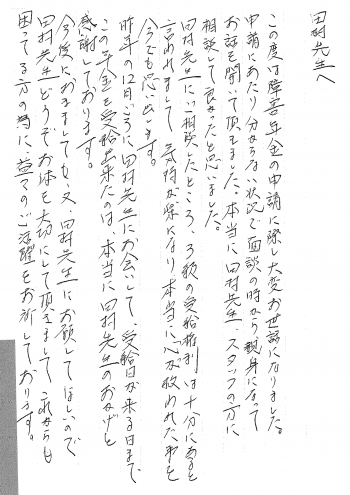 田村先生へ
この度は障害年金の申請に際し大変お世話になりました。
申請にあたり分からない状況で面談の時から親身になって
お話を聞いて頂きました。本当に田村先生、スタッフの方に
相談して良かったと思いました。
田村先生にご相談したところ、3級の受給権利は十分にあると
言われまして、気持が楽になり本当に心が救われた事を
今でも思い出します。
昨年の12月ころに田村先生にお会いして、受給日が来る日まで
この年金を受給出来たのは、本当に田村先生のおかげと
感謝しております。
今後におきましても、又、田村先生にお願してほしいので
田村先生どうぞお体を大切にして頂きまして、これからも
困ってる方の為に、益々のご活躍をお祈しております。